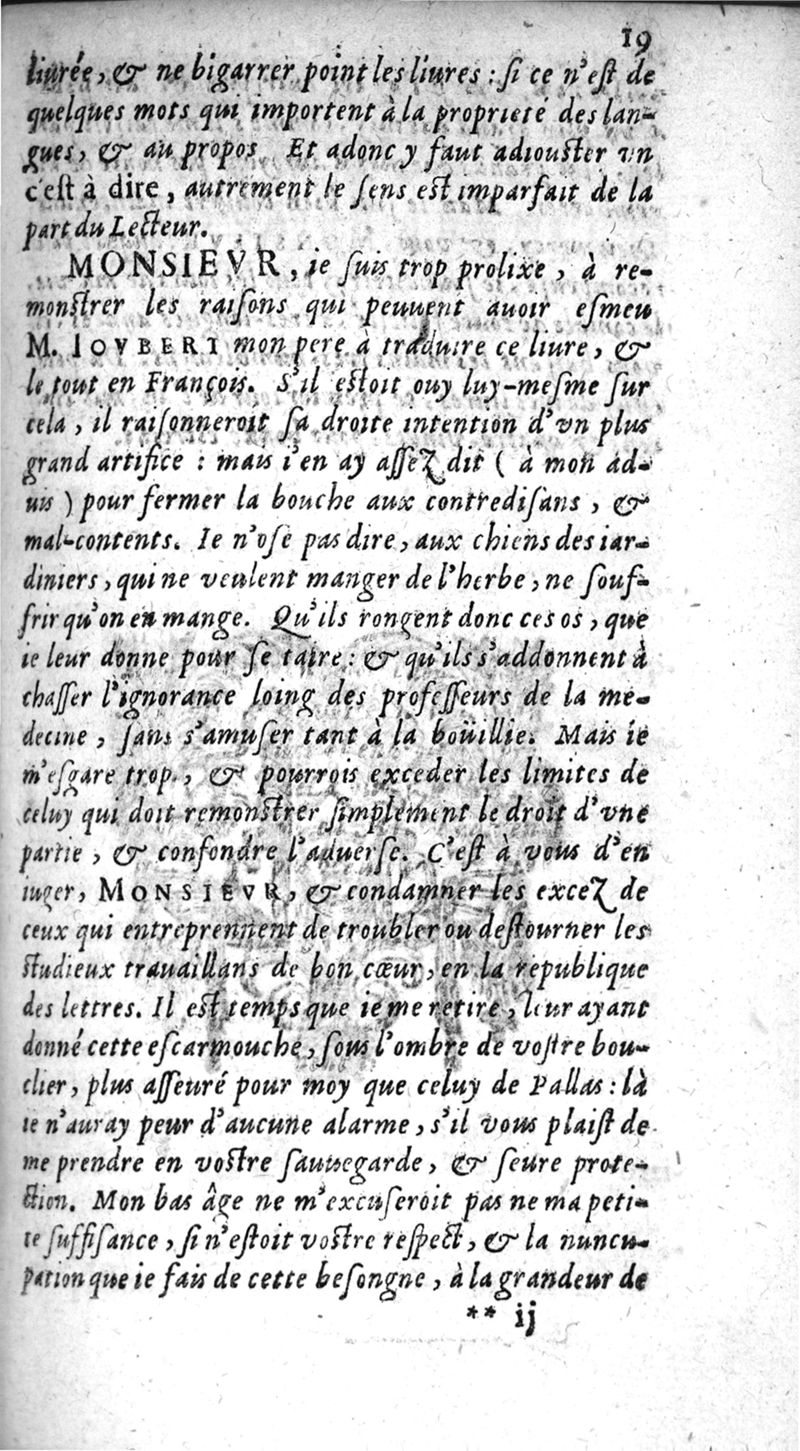 19
liurée, & ne bigarrer point les liures : si ce n'est de
quelques mots qui importent à la proprieté des lan-
gues, & au propos. Et adonc y faut adiouster vn
c'est à dire, autrement le sens est imparfait de la
part du Lecteur.
MONSIEVR, ie suis trop prolixe, à re-
monstrer les raisons qui peuuent auoir esmeu
M. IOVBERT mon pere à traduire ce liure, &
le tout en François. S'il estoit ouy luy-mesme sur
cela, il raisonneroit sa droite intention d'vn plus
grand artifice : mais i'en ay assez dit ( à mon ad-
uis ) pour fermer la bouche aux contredisans, &
mal-contents. Ie n'ose pas dire, aux chiens des iar-
diniers, qui ne veulent manger de l'herbe, ne souf-
frir qu'on en mange. Qu'ils rongent donc ces os, que
ie leur donne pour se taire : & qu'ils s'addonnent à
chasser l'ignorance loing des professeurs de la me-
decine, sans s'amuser tant à la boüillie. Mais ie
m'esgare trop, & pourrois exceder les limites de
celuy qui doit remonstrer simplement le droit d'vne
partie, & confondre l'aduerse. C'est à vous d'en
iuger, MONSIEVR, & condamner les excez de
ceux qui entreprennent de troubler ou destourner les
studieux trauaillans de bon cœur, en la republique
des lettres. Il est temps que ie me retire, leur ayant
donné cette escarmouche, sous l'ombre de vostre bou-
clier, plus asseuré pour moy que celuy de Pallas : là
ie n'auray peur d'aucune alarme, s'il vous plaist de
me prendre en vostre sauuegarde, & seure prote-
ction. Mon bas âge ne m'excuseroit pas ne ma peti-
te suffisance, si n'estoit vostre respect, & la nuncu-
pation que ie fais de cette besongne, à la grandeur de
** ij